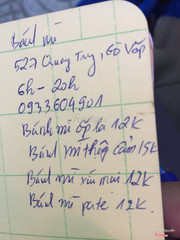 Bánh mì
527 Quang Trung, Gò Vấp
6h - 20h
0933604901
Bánh mì ốp la 12K
Bánh mì thập cẩm 15K
Bánh mì xíu mại 12K
Bánh mì pate 12K.